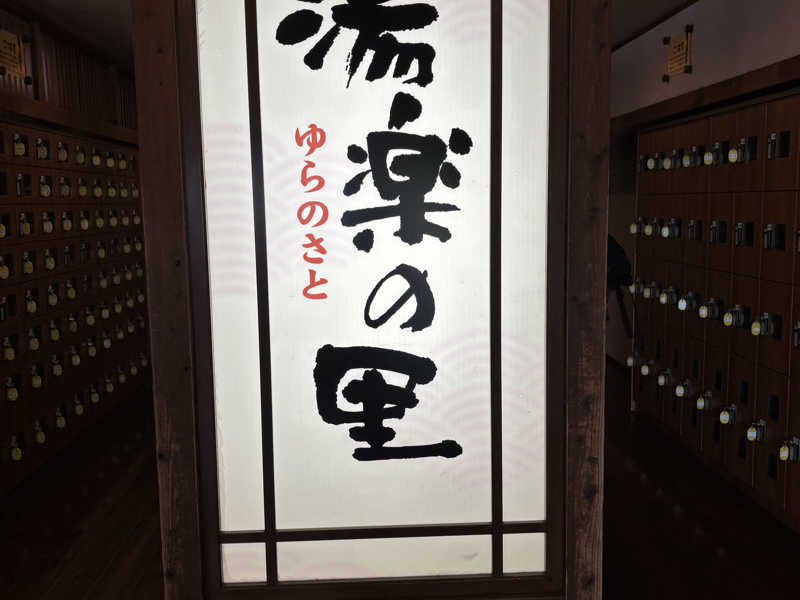 湯楽の里
ゆらのさと